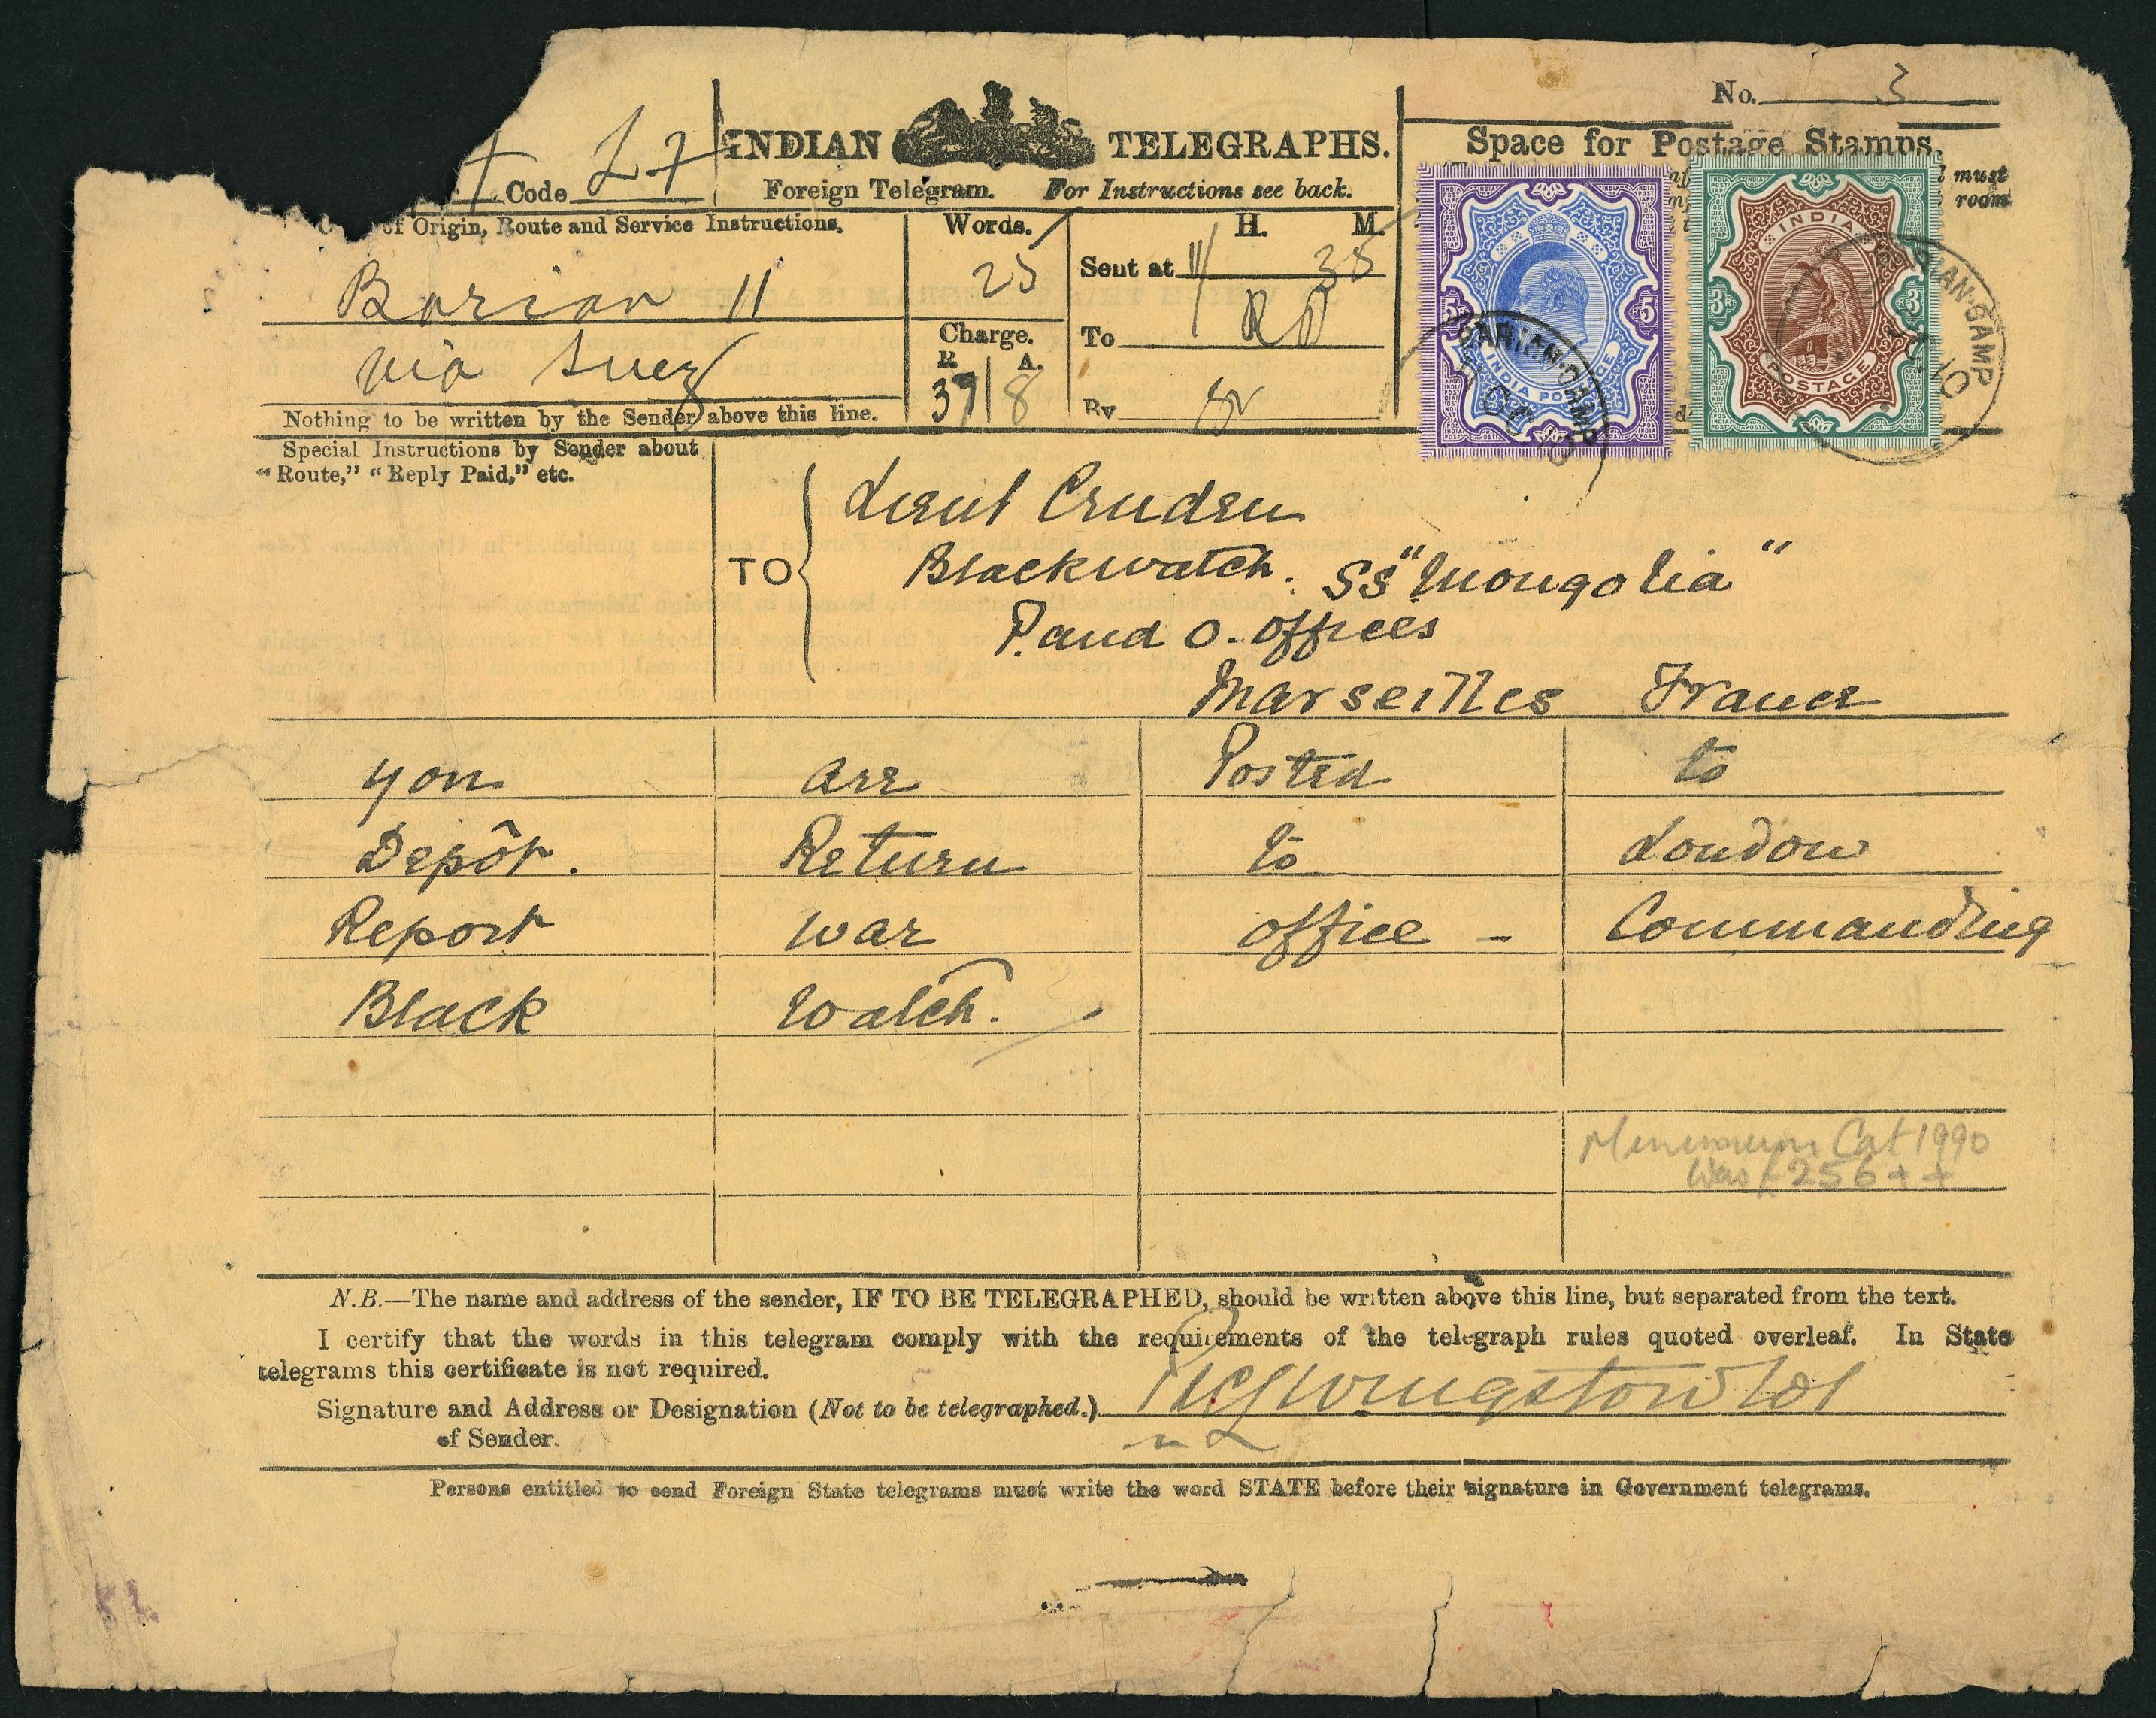 No. 3
Code
INDIAN TELEGRAPHS.
Space for Postage Stamps.
must
room
Foreign Telegram. For Instructions see back.
of Origin, Route and Service Instructions.
Words.
25
H. M.
Sent at 11 38
Barian 11
via Suez
Charge.
R. A.
39 8
To
By
Nothing to be written by the Sender above this line.
5 R5
INDIA POSTAGE
INDIA
3 3
POSTAGE
BARIAN·CAMP
BARIAN·CAMP
10
Special Instructions by Sender about
"Route," "Reply Paid," etc.
TO
Lieut Cruden
Blackwatch. SS "Mongolia"
P. and O. Offices
Marseilles France
you are Posted to
Depôt. Return to London
Report War office - Commanding
Black Watch.
Minimum Cat 1990
was £256++
N.B.—The name and address of the sender, IF TO BE TELEGRAPHED, should be written above this line, but separated from the text.
I certify that the words in this telegram comply with the requirements of the telegraph rules quoted overleaf. In State
telegrams this certificate is not required.
Signature and Address or Designation (Not to be telegraphed.)
of Sender.
Persons entitled to send Foreign State telegrams must write the word STATE before their signature in Government telegrams.